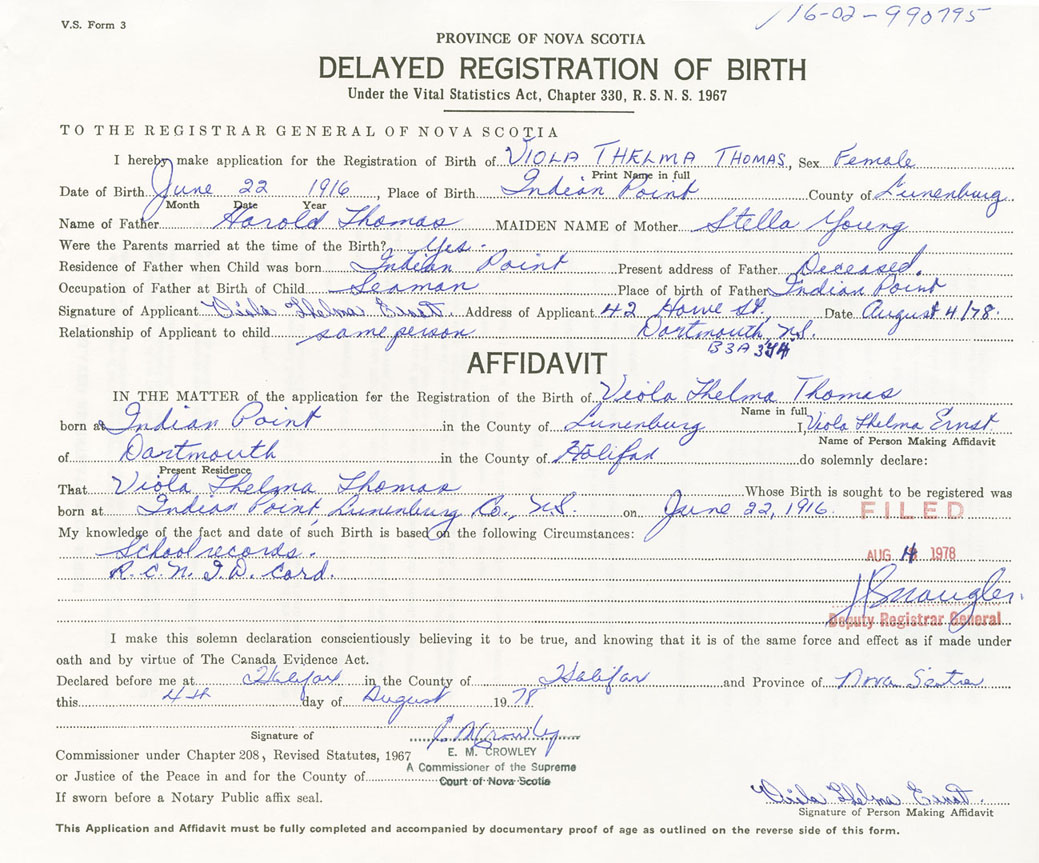 V.S. Form 3
16-02-990795
PROVINCE OF NOVA SCOTIA
DELAYED REGISTRATION OF BIRTH
Under the Vital Statistics Act, Chapter 330, R. S. N. S. 1967
TO THE REGISTRAR GENERAL OF NOVA SCOTIA
I hereby make application for the Registration of Birth of VIOLA THELMA THOMAS, Sex Female
Print Name in full
Date of Birth June 22 1916 Place of Birth Indian Point County of Lunenburg
Month Date Year
Name of Father Harold Thomas MAIDEN NAME of Mother Stella Young
Were the Parents married at the time of the Birth? Yes.
Residence of Father when Child was born Indian Point Present address of Father Deceased.
Occupation of Father at Birth of Child Seaman Place of birth of Father Indian Point
Signature of Applicant Viola Thelma Ernst Address of Applicant 42 Howe St. Date August 4/78.
Relationship of Applicant to child same person Dartmouth, N.S.
B3A
AFFIDAVIT
IN THE MATTER of the application for the Registration of the Birth of Viola Thelma Thomas
Name in full
born at Indian Point in the County of Lunenburg I, Viola Thelma Ernst
Name of Person Making Affidavit
of Dartmouth in the County of Halifax do solemnly declare:
Present Residence
That Viola Thelma Thomas Whose Birth is sought to be registered was
born at Indian Point, Lunenburg Co., N.S. on June 22, 1916.
FILED
My knowledge of the fact and date of such Birth is based on the following Circumstances:
School records.
AUG 4 1978
R.C.N. I.D. Card.
Deputy Registrar General
I make this solemn declaration conscientiously believing it to be true, and knowing that it is of the same force and effect as if made under
oath and by virtue of The Canada Evidence Act.
Declared before me at Halifax in the County of Halifax and Province of Nova Scotia
this 4th day of August 1978
Signature of E M Crowley
E. M. CROWLEY
Commissioner under Chapter 208, Revised Statutes, 1967
A Commissioner of the Supreme
or Justice of the Peace in and for the County of
Court of Nova Scotia
If sworn before a Notary Public affix seal.
Viola Thelma Ernst.
Signature of Person Making Affidavit
This Application and Affidavit must be fully completed and accompanied by documentary proof of age as outlined on the reverse side of this form.